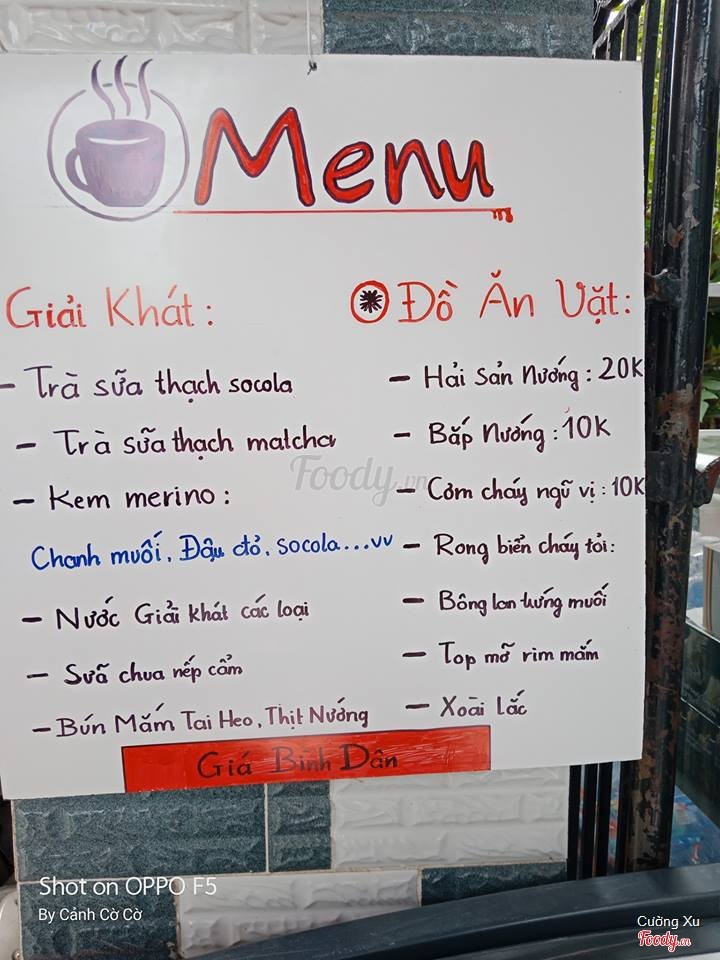 Menu
Giải Khát:
- Trà sữa thạch socola
- Trà sữa thạch matcha
- Kem merino:
Chanh muối, Đậu đỏ, socola...vv
- Nước Giải khát các loại
- Sữa chua nếp cẩm
- Bún Mắm Tai Heo, Thịt Nướng
Đồ Ăn Vặt:
- Hải Sản Nướng: 20K
- Bắp Nướng: 10K
- Cơm cháy ngũ vị: 10K
- Rong biển cháy tỏi:
- Bông lan trứng muối
- Top mỡ rim mắm
- Xoài lắc
Giá Bình Dân
Foody.vn
Shot on OPPO F5
By Cảnh Cờ Cờ
Cường Xu
Foody.vn